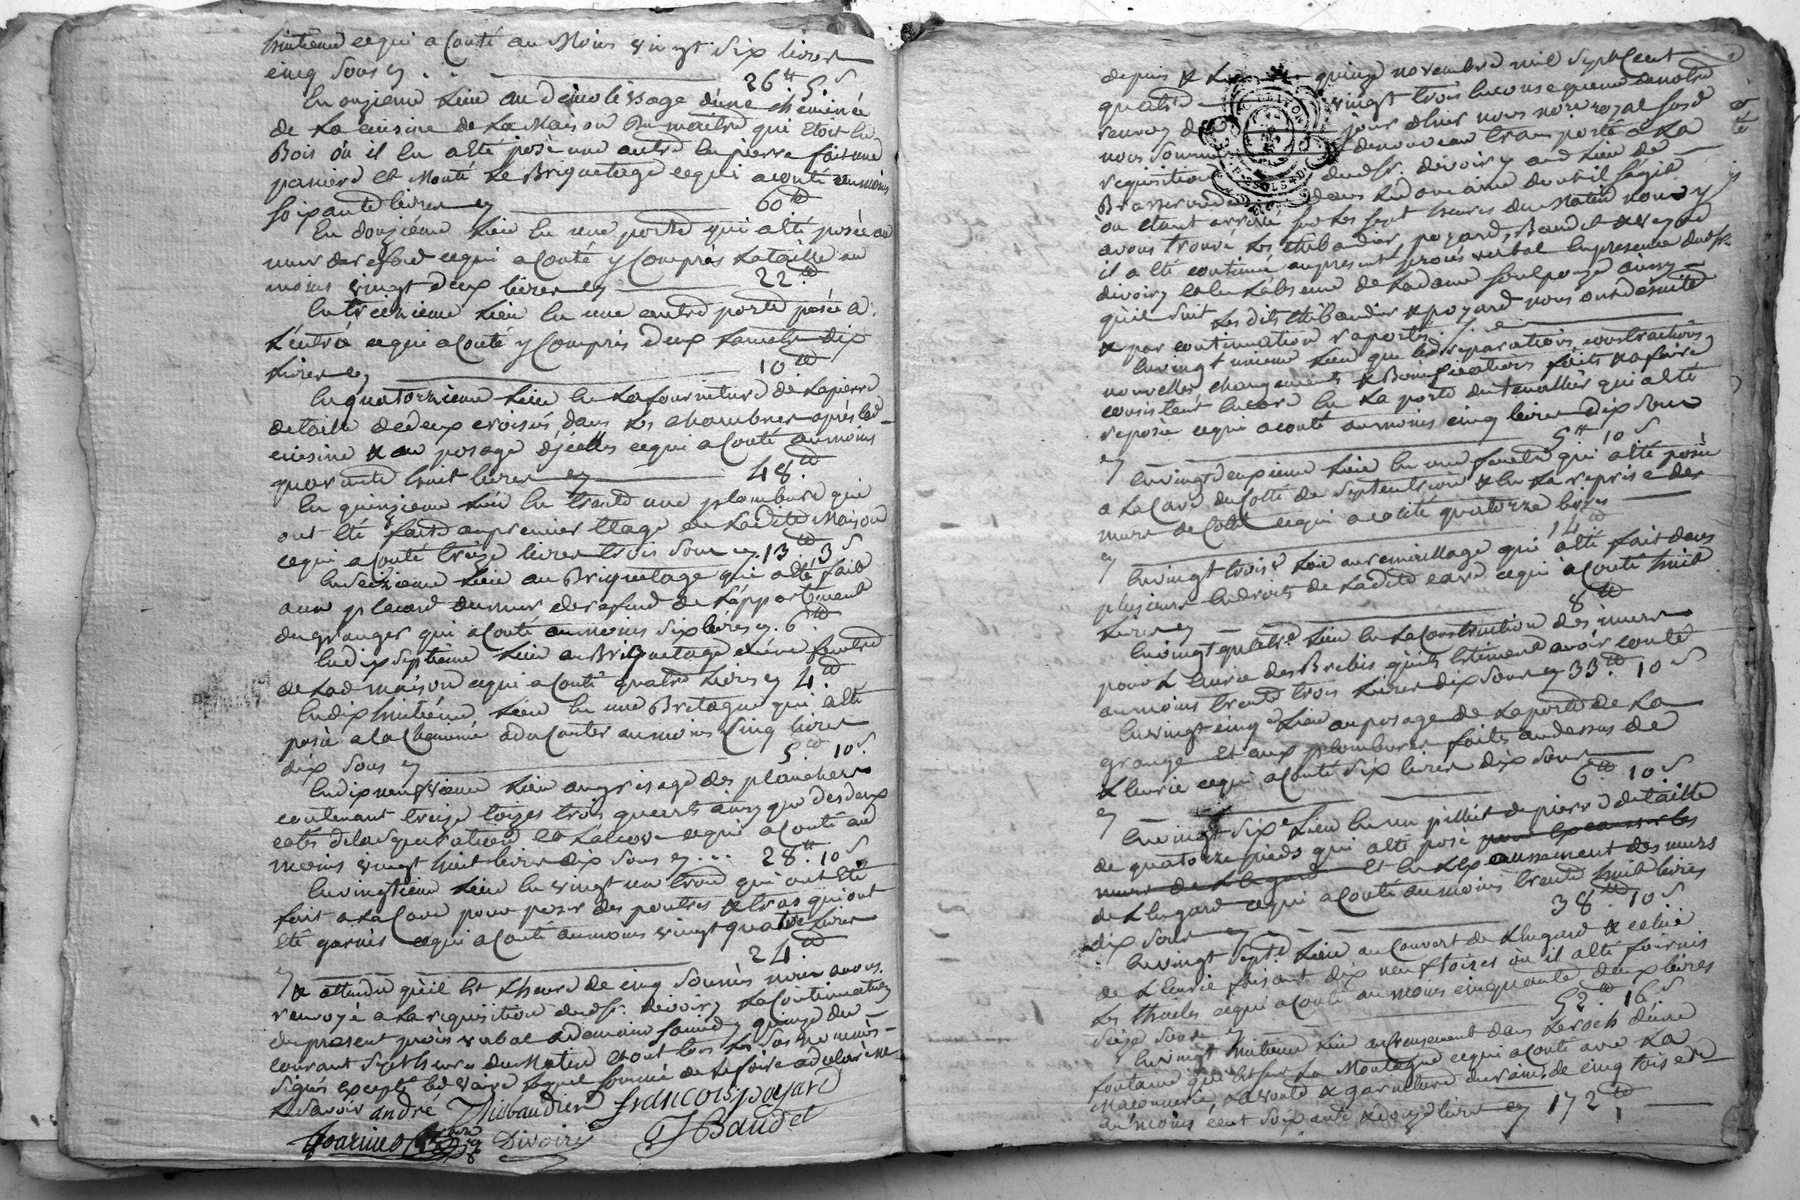 huitieme cequi a Couté au Moins vingt Six livres
cinq Sous cy . . 26.tt 5.s
En onzieme Lieu au démolissage d'une cheminée
de La cuisine de La Maison Du maitre qui Etoit En
Bois où il En a Eté posé une autre En pierre
et Monté Le Briquetage cequi a couté aumoins
soixante livres cy 60.tt
En douzieme Lieu En une porte qui a Eté posée au
mur de refend cequi a Couté y Compris La taille au
moins vingt deux livres cy 22.tt
En treizieme Lieu En une autre porte posée a
L'entrée cequi a Couté y Compris deux dix
Livres cy 10.tt
En quatorzieme Lieu En La fourniture de La pierre
detaille de deux croisés dans Les chambres après Lad.
cuisine & au posage d'jcelles cequi a Couté aumoins
quarante huit livres cy 48.tt
En quinzieme Lieu En trente une plombure qui
ont Eté faite au premier Etage de Ladite Maison
cequi a Couté treize livres trois Sous cy. 13.tt 3.s
En seizieme Lieu au Briquetage qui a Eté fait
a un placard du mur de refend de L'appartement
du granger qui a Couté aumoins six livres cy. 6.tt
En dix Septieme Lieu au Briquetage d'une fenetre
de Lad maison cequi a Couté quatre Livres cy 4.tt
En dix huitieme Lieu En une Bretagne qui a Eté
posée a La Cheminée a du Couter aumoins Cinq livres
dix Sous cy 5.tt 10.s
En dix neuvieme Lieu au grisage des planchers
contenant treize toizes trois quarts ainsy que des deux
cotés de La Séparation et L'alcove cequi a Couté au
moins vingt huit livres dix Sous cy ... 28.tt 10.s
En vingtieme Lieu En vingt un trous qui ont Eté
fait a La Cave pour poser des poutres & tras qui ont
Eté garnis cequi a Couté aumoins vingt quatre Livres
cy 24.tt
& attendu qu'il Est L'heure de cinq Sonnés nous avons
renvoyé a La requisition dudSr. divoiry La Continuation
du present procès verbal a demain Samedy quinze du
courant Sept heures du Matin et ont tous Les Sus nommés
Signés excepté Led Vaire Lequel sommé de Le faire a declaré ne
Le Savoir andré Thibaudier françois poyard
fournier Divoiry J Baudet
depuis & L quinze novembre mil Sept Cent
quatre vingt trois En consequence de notre
renvoy de jour d'hier nous nore. royal susd.
nous Sommes denouveau transporté a La
requisition dudSr. divoiry aud Lieu de
dans Le domaine dont il s'agit
où étant arrivés sur Les sept heures du Matin nous y
avons trouvé Les thibaudier, poyard, Baudet & Vaire
il a Eté continué au present procès verbal En presence dudSr.
divoiry et En L'absence de La dame ainsy
qu'il suit Les dits thibaudier & poyard nous ont desuite
& par continuation raporté
En vingt unieme Lieu que Les reparations, constructions
nouvelles, changements & Bonifications faits & a faire,
consistent Encore En La porte du tenallier qui a Eté
reposée cequi a couté aumoins cinq livres dix Sous
cy 5.tt 10.s
En vingt deuxieme Lieu En une fenetre qui a Eté posée
a La Cave du Cotté de Septentrion & En La reprise des
murs de Cotté cequi a couté quatorze livres
cy 14.tt
En vingt trois.e Lieu au remaillage qui a Eté fait dans
plusieurs Endroits de Ladite cave cequi a Couté huit
Livres cy 8.tt
En vingt quatre. Lieu En La Construction des murs
pour L'Ecurie des Brebis qu'ils Estiment avoir couté
aumoins trente trois Livres dix Sous cy 33.tt 10.s
En vingt cinq.e Lieu au posage de La porte de La
grange et aux plombures faites au dessus de
L'Ecurie cequi a Couté Six livres dix Sous
cy 6.tt 10.s
En vingt Six.e Lieu En un pillier de pierre detaille
de quatorze pieds qui a Eté posé
et En L'Exaussement des murs
de L'Engard cequi a Couté aumoins trente huit livres
dix Sous cy 38.tt 10.s
En vingt Sept.e Lieu au Couvert de L'hugard & celui
de L'Ecurie faisant dix neuf toises où il a Eté fournis
Les thuiles cequi a Couté au moins cinquante deux livres
Seize Sous cy 52.tt 16.s
En vingt huitieme Lieu au Creusement dans Le roch d'une
fontaine qui est sur La Montagne cequi a Couté avec La
Maçonnerie, La voute & garniture du rains de cinq toises
au moins cent soixante & douze livres cy 172.tt